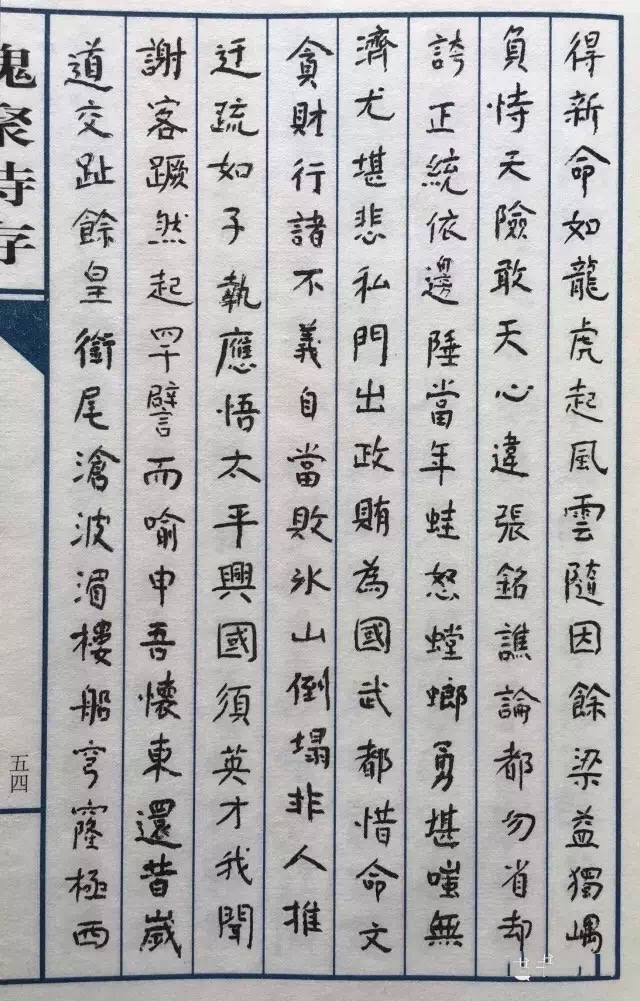 得新命如龍虎起風雲隨因餘梁益獨嵎
負恃天險敢天心違張銘譙論都勿省却
誇正統依邊陲當年蛙怒螳螂勇堪嗤無
濟尤堪悲私門出政賄為國武都惜命文
貪財行諸不義自當敗氷山倒塌非人推
迂疏如子執應悟太平興國須英才我聞
謝客蹶然起罕譬而喻申吾懷東還昔歲
道交趾餘皇銜尾滄波湄樓船穹窿極西
五四